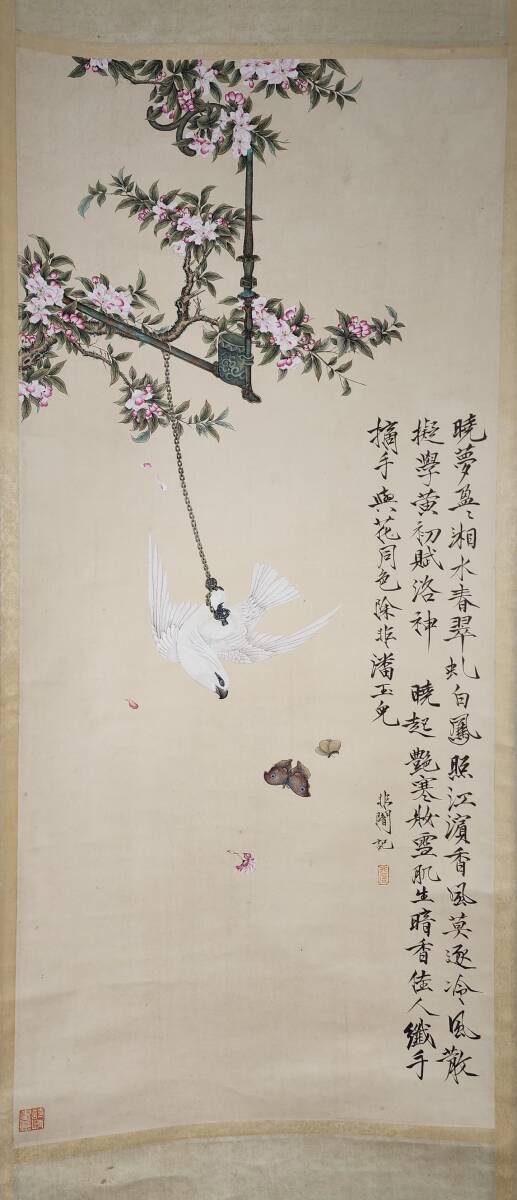 曉夢盈〻湘水春翠虬白鳳照江濱香風莫逐冷風散
擬學黃初賦洛神 曉起艷寒妝雪肌生暗香佳人纖手
摘手與花同色除非潘玉兒
非闇記